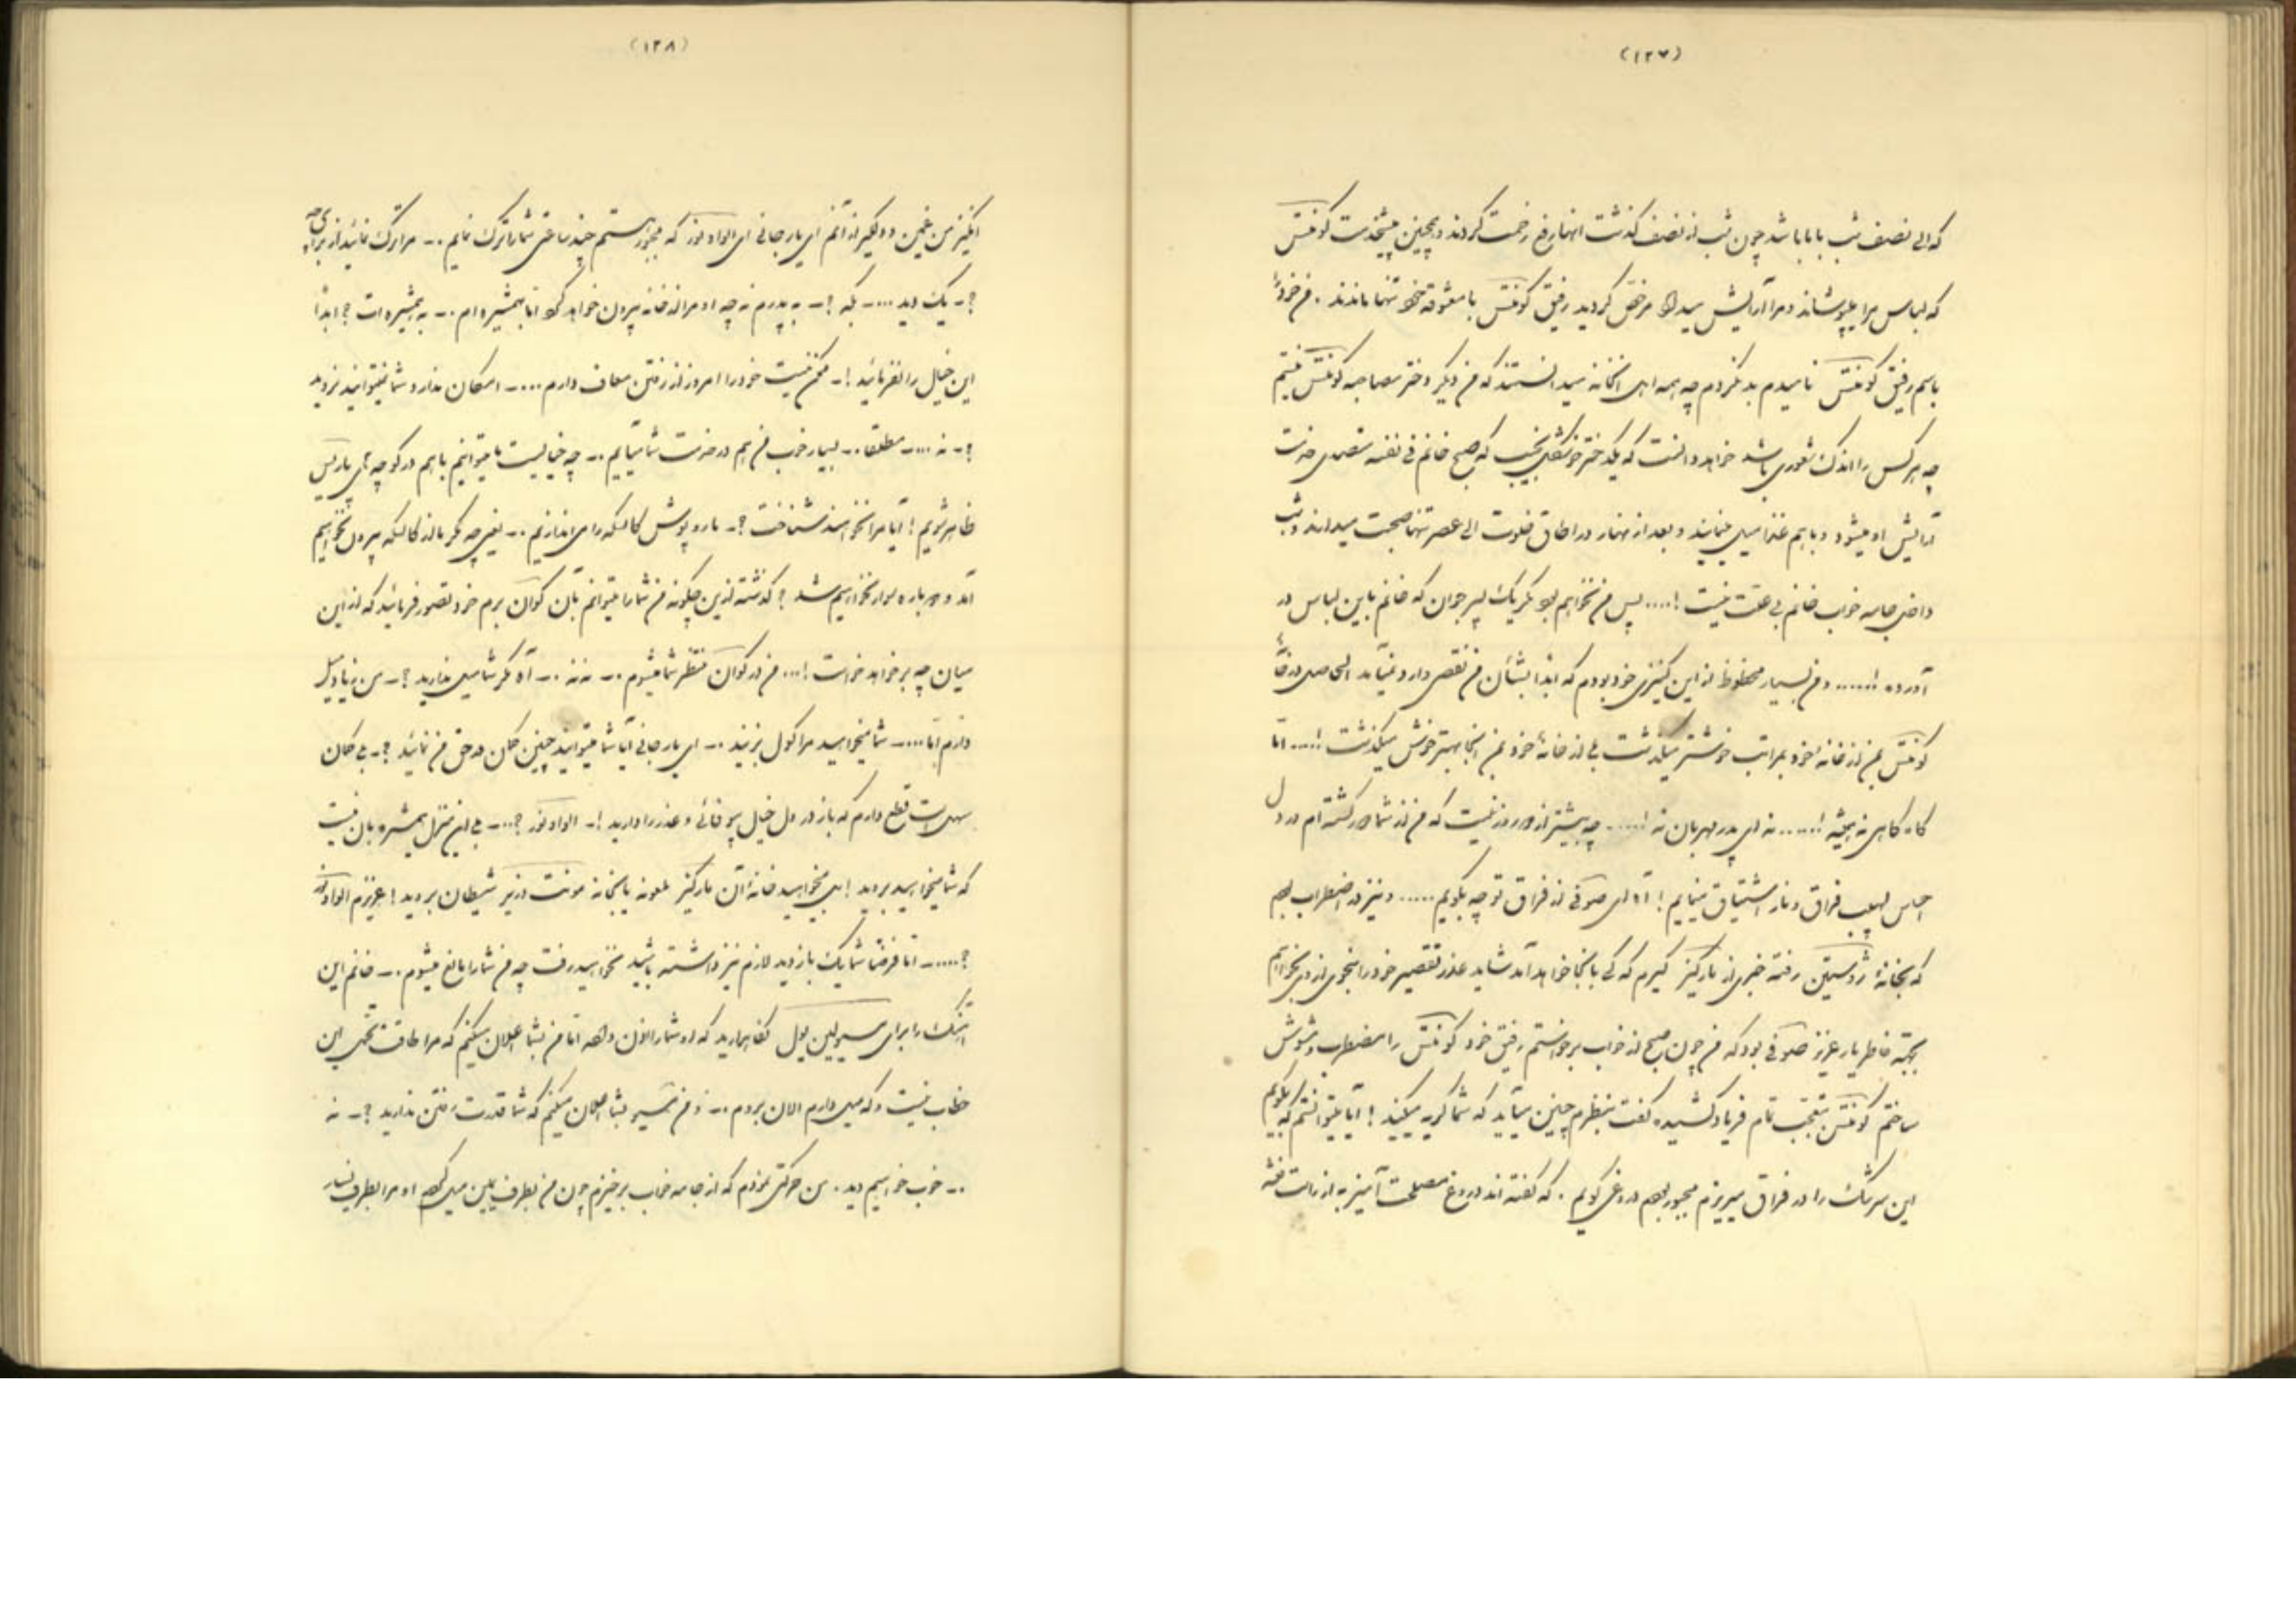 (۱۲۷)
که الی نصف شب با بابا باشد چون شب از نصف گذشت اظهار رفع زحمت کردند و همچنین پیشخدمت کونتس
که لباس مرا میپوشاند و مرا آرایش میداد مرخص گردید رفیق کونتس با معشوقه خود تنها ماندند . من خود را
باسم رفیق کونتس نامیدم بد نکردم چه همه اهل آنخانه میدانستند که من دیگر دختر مصاحبه کونتس نیستم
چه هر کس را اندک شعوری باشد خواهد دانست که یک دختر خوشگل نجیب که صبح خانم فی نفسه متصدی خدمت
آرایش او میشود و با هم غذا میل مینمایند و بعد از نهار در اطاق خلوت الی عصر تنها صحبت میدارند و شب
داخل جامه خواب خانم بی علت نیست !.... پس من نخواهم بود مگر یک پسر جوان که خانم باین لباس در
آورده !...... و من بسیار محظوظ از این کنیزی خود بودم که ابداً بشأن من نقص وارد نمیآید الحاصل در خانهٔ
کونتس بمن از خانه خود بمراتب خوشتر میگذشت بلی از خانهٔ خود بمن اینجا بهتر خوش میگذشت !.... اما
گاه گاهی نه همیشه !...... نه ای پدر مهربان نه !..... چه بیشتر از دو روز نیست که من از شما دور گشته‌ام در دل
احساس لهیب فراق و نار اشتیاق مینمایم ! آه ای صوفی از فراق تو چه بگویم...... و نیز در اضطراب بودم
که بخانهٔ ژوستین رفته خبری از مارکیز گیرم که کی باینجا خواهد آمد شاید عذر تقصیر خود را بنحوی از وی بخواهم
بجهة خاطر یار عزیز صوفی بود که من چون صبح از خواب برخواستم رفیق خود کونتس را مضطرب و مشوش
ساختم کونتس بتعجب تمام فریاد کشیده گفت بنظرم چنین میآید که شما گریه میکنید ! آیا میتوانستم که بگویم
این سرشک را در فراق میریزم مجبور بودم دروغی گویم . که گفته‌اند دروغ مصلحت آمیز به از راست فتنه
(۱۲۸)
انگیز من غمین و دلگیر از آنم ای یار جانی ای الوادنور که مجبور هستم چند ساعتی شما را ترک نمایم .- مرا ترک نمائید از برای چه
؟- یک دید ....- بکه ؟- به پدرم نه چه او مرا از خانه بیرون خواهد کرد اما بهمشیره‌ام .- به همشیره‌ات ؟ ابداً
این خیال را نفرمائید !- ممکن نیست خود را امروز از رفتن معاف دارم ....- امکان ندارد شما نمیتوانید نروید
؟- نه ....- مطلقا .- بسیار خوب من هم در خدمت شما میآیم .- چه خیالیست ما میتوانیم با هم در کوچه‌های پاریس
ظاهر شویم ! آیا مرا نخواهند شناخت ؟- ما رو پوش کالسکه را می‌اندازیم .- یعنی چه مگر ما از کالسکه بیرون نخواهیم
آمد و دوباره سوار نخواهیم شد ؟ گذشته ازین چگونه من شما را میتوانم بآن کوان برم خود تصور فرمائید که از این
میان چه بر خواهد خواست !... من در کوان منتظر شما میشوم .- نه نه .- آه مگر شما میل ندارید ؟- من زیاد میل
دارم اما ....- شما میخواهید مرا گول بزنید .- ای یار جانی آیا شما میتوانید چنین گمان در حق من نمائید ؟- بی گمان
سهل است قطع دارم که باز در دل خیال بیوفائی و غدر را دارید !- الوادنور ؟...- بلی این منزل همشیره‌تان نیست
که شما میخواهید بروید ! بلی میخواهید خانهٔ آن مارکیز ملعونه یا بخانه مونت دزیر شیطان بروید ! عزیزم الوادنور
؟....- اما فرضاً شما یک بازدید لازم نیز داشته باشید نخواهید رفت چه من شما را مانع میشوم .- خانم این
را برای مسیو لین‌یول نگاهدارید که او شما را اذن داده اما من بشما اعلان میکنم که مرا طاقت تحمل این
خطاب نیست و که میل دارم الان بروم .- و من نیز بشما اعلان میکنم که شما قدرت رفتن ندارید ؟- نه
.- خوب خواهیم دید . من حرکتی نمودم که از جامه خواب برخیزم چون من بطرف یمین میل کردم او مرا بطرف یسار